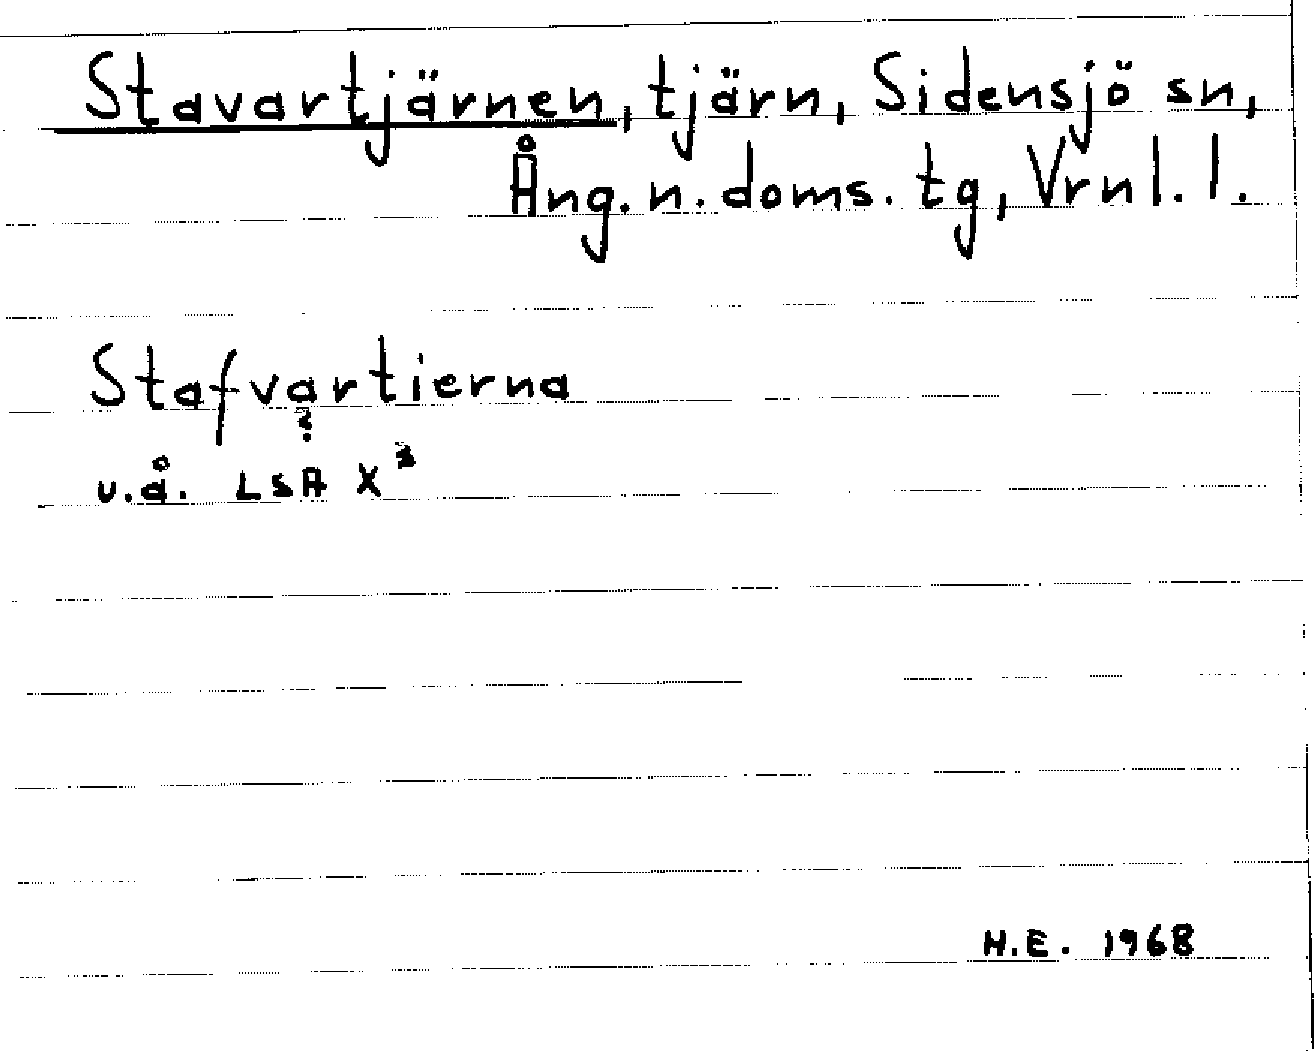 Stavartjärnen, tjärn, Sidensjö sn,
Ång. n. doms. tg, Vrnl. l.
Stafvartierna
?
u.å. LSA X³
H.E. 1968